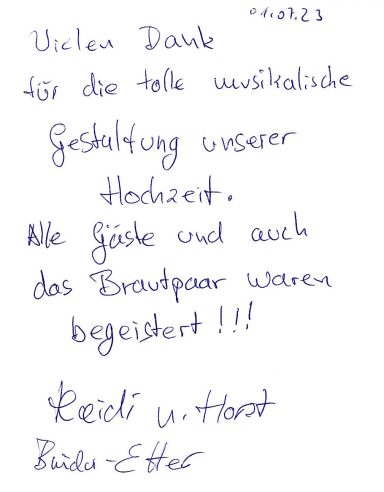 01.07.23
Vielen Dank
für die tolle musikalische
Gestaltung unserer
Hochzeit.
Alle Gäste und auch
das Brautpaar waren
begeistert !!!
Heidi u. Horst
-Etter